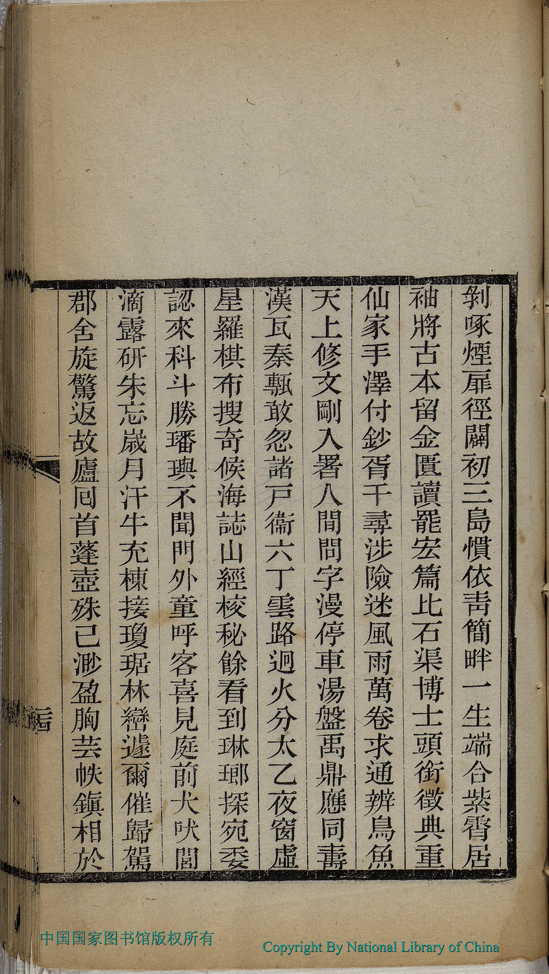 剝啄煙扉徑闢初三島慣依靑簡畔一生端合紫霄居
袖將古本留金匱讀罷宏篇比石渠博士頭銜徵典重
仙家手澤付鈔胥千尋涉險迷風雨萬卷求通辨鳥魚
天上修文剛入署人間問字漫停車湯盤禹鼎應同壽
漢瓦秦甎敢忽諸戸衞六丁雲路迥火分太乙夜窗虛
星羅棋布搜奇候海誌山經校秘餘看到琳瑯探宛委
認來科斗勝璠璵不聞門外童呼客喜見庭前犬吠閭
滴露研朱忘歲月汗牛充棟接瓊琚林巒遽爾催歸駕
郡舍旋驚返故廬囘首蓬壺殊已渺盈胸芸帙鎭相於
二三
中国国家图书馆版权所有
Copyright By National Library of China